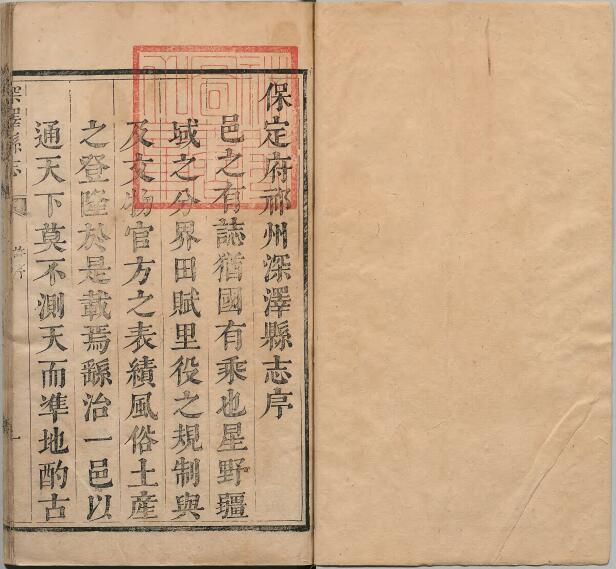 保定府祁州深澤縣志序
邑之有誌猶國有乘也星野疆
域之分界田賦里役之規制與
及文物官方之表績風俗土產
之登隆於是載焉繇治一邑以
通天下莫不測天而準地酌古
深澤縣志